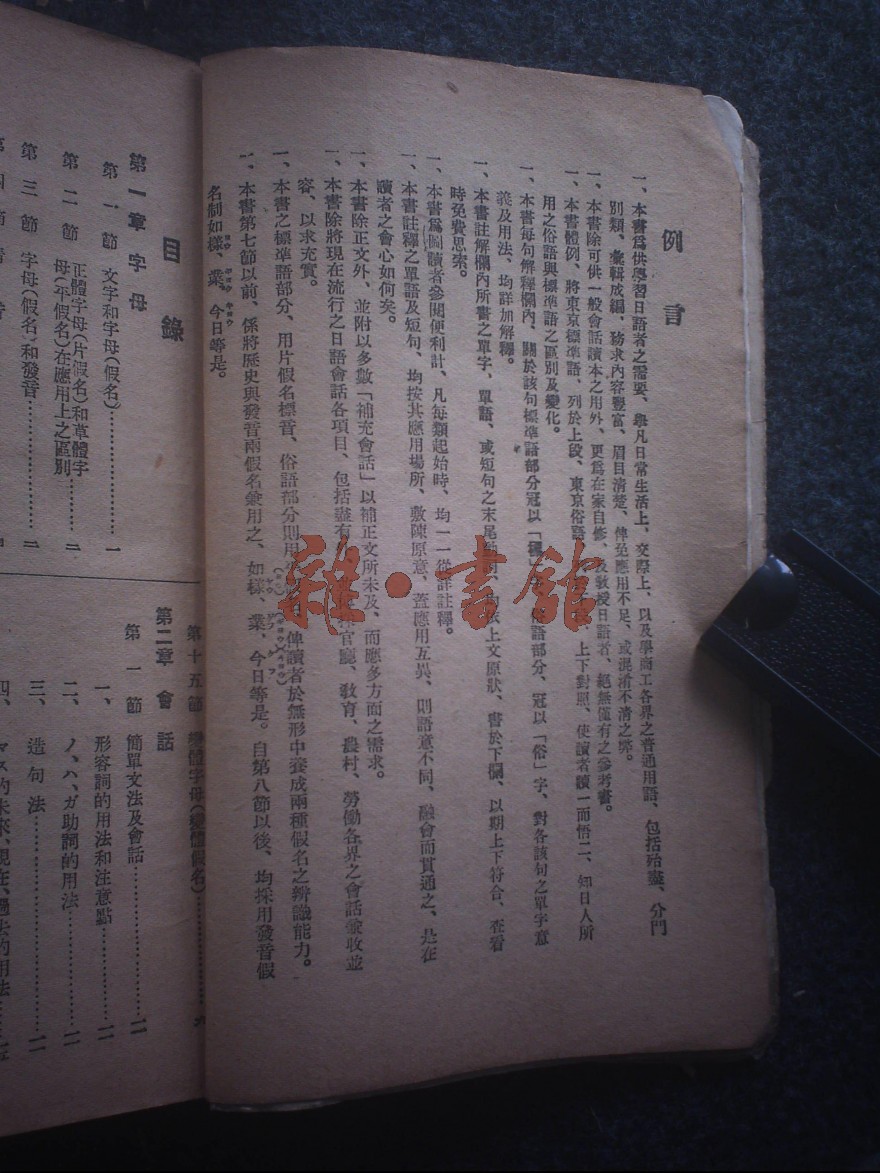 例言
一、本書爲供學習日語者之需要、舉凡日常生活上、交際上、以及學商工各界之普通用語、包括殆盡、分門
別類、彙輯成編、務求內容豐富、眉目清楚、俾免應用不足、或混淆不清之弊。
一、本書除可供一般會話讀本之用外、更爲在家自修、及敎授日語者、絕無僅有之參考書。
一、本書體例、將東京標準語、列於上段、東京俗語、上下對照、使讀者讀一而悟二、知日人所
用之俗語與標準語之區別及變化。
一、本書每句解釋欄內、關於該句標準語部分冠以「標」俗語部分、冠以「俗」字、對各該句之單字意
義及用法、均詳加解釋。
一、本書註解欄內所書之單字、單語、或短句之末尾依上文原狀、書於下欄、以期上下符合、查看
時免費思索。
一、本書爲圖讀者參閱便利計、凡每類起始時、均一一從詳註釋。
一、本書註釋之單語及短句、均按其應用場所、敷陳原意、蓋應用互異、則語意不同、融會而貫通之、是在
讀者之會心如何矣。
一、本書除正文外、並附以多數「補充會話」以補正文所未及、而應多方面之需求。
一、本書除將現在流行之日語會話各項目、包括盡有官廳、敎育、農村、勞働各界之會話兼收並
容、以求充實。
一、本書之標準語部分、用片假名標音、俗語部分則用俾讀者於無形中養成兩種假名之辨識能力。
一、本書第七節以前、係將歷史與發音兩假名兼用之、如樣、業、今日等是。自第八節以後、均採用發音假
名制如樣、業、今日等是。
目錄
第一章 字母
第一節 文字和字母(假名)…………一
第二節 正體字母(片假名)和草體字
母(平假名)在應用上之區別…………二
第三節 字母(假名)和發音…………二
第十五節 變體字母(變體假名)…………
第二章 會話
第一節 簡單文法及會話…………一一
一、形容詞的用法和注意點…………一一
二、ノ、ハ、ガ助詞的用法…………一一
三、造句法…………一一
四、マス的未來、現在、過去的用法
雜·書館